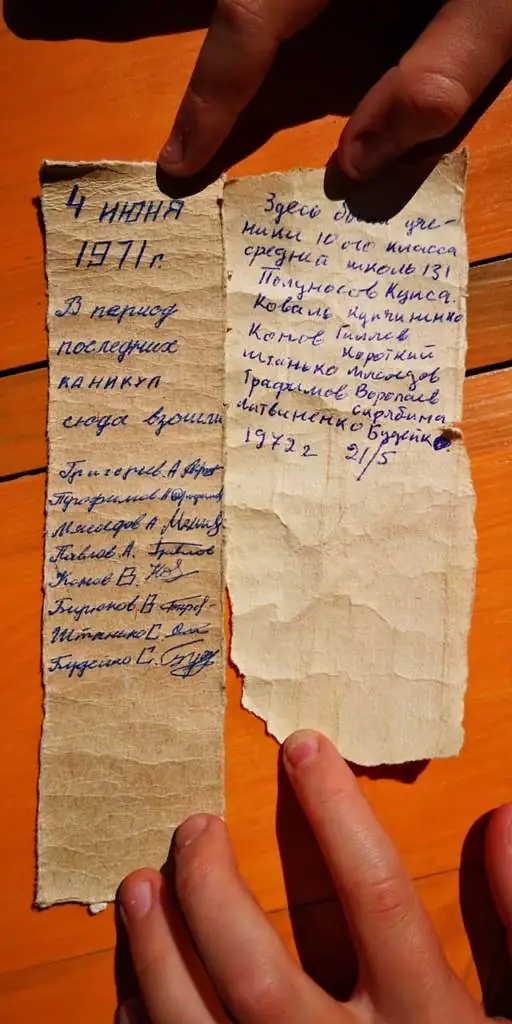 4 июня
1971 г.
В период
последних
каникул
сюда взошли
Григорьев А.
Трофимов А.
Мясоедов А.
Павлов А.
Конов В.
Бирюков В.
Штанько С.
Будейко С.
Здесь были уче-
ники 10ого класса
средний школь 131
Полуносов Купса.
Коваль Купчиненко
Конов Гиллев
Короткий
штанько Мясоедов
Трафимов Воропаев
Скрябина
Литвиненко Будейко.
1972 г 21/5